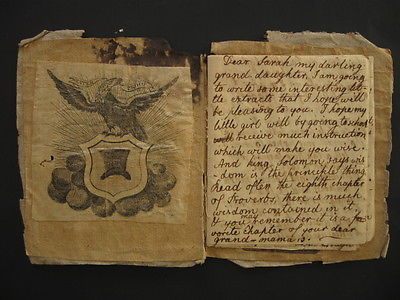 Dear Sarah my darling
grand daughter, I am going
to write some interesting lit
tle extracts that I hope will
be pleasing to you. I hope my
little girl will by going to school
will receive much instruction
which will make you wise.
And king Solomon says wis
dom is the principle thing
Read often the eighth chapter
of Proverbs, there is much
wisdom contained in it,
& you may remember it is a fav
vorite Chapter of your dear
grand-mama